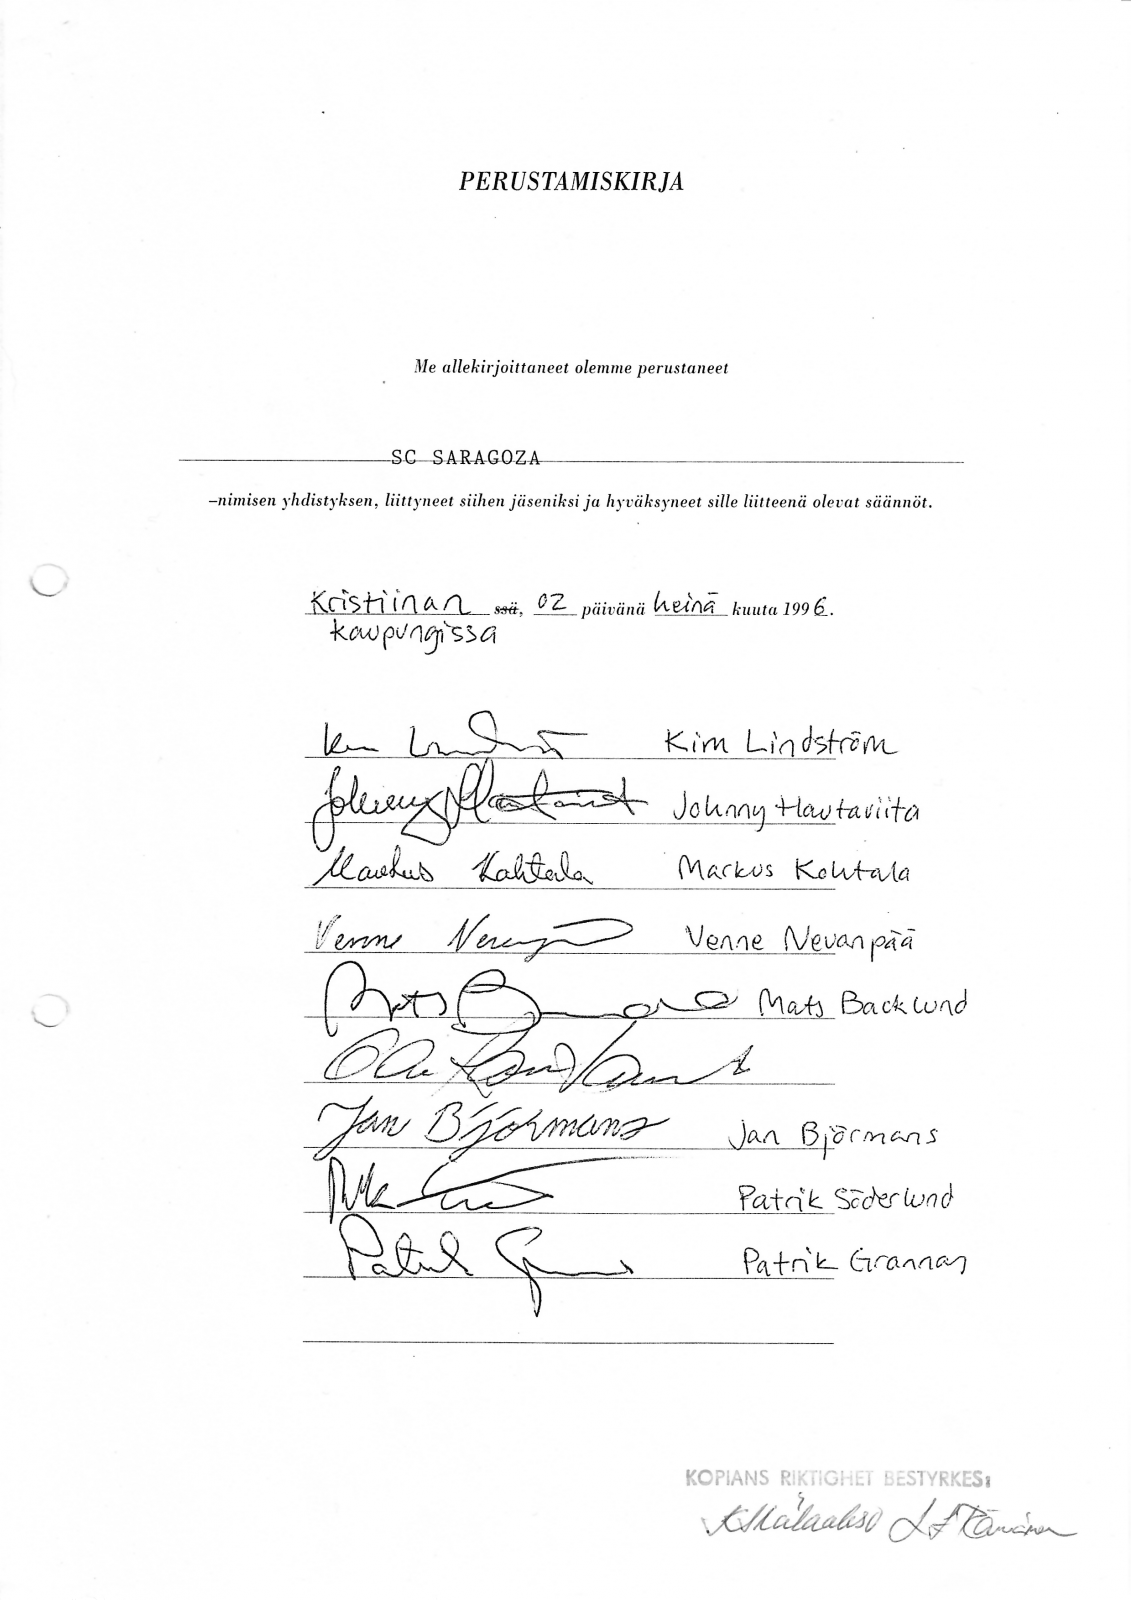 PERUSTAMISKIRJA
Me allekirjoittaneet olemme perustaneet
SC SARAGOZA
-nimisen yhdistyksen, liittyneet siihen jäseniksi ja hyväksyneet sille liitteenä olevat säännöt.
Kristiinan ssä, 02 päivänä heinä kuuta 1996.
kaupungissa
Kim Lindström Kim Lindström
Johnny Hautaviita Johnny Hautaviita
Markus Kohtala Markus Kohtala
Venne Venne Nevanpää
Mats Mats Backlund
Jan Björmans Jan Björmans
Patrik Söderlund
Patrik Patrik Grannas
KOPIANS RIKTIGHET BESTYRKES: